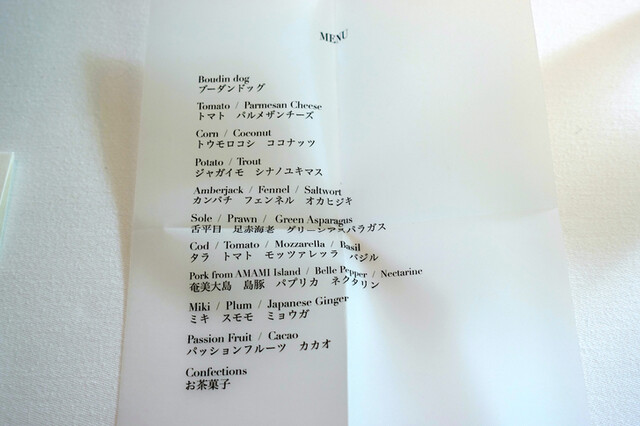 MENU
Boudin dog
ブーダンドッグ
Tomato / Parmesan Cheese
トマト パルメザンチーズ
Corn / Coconut
トウモロコシ ココナッツ
Potato / Trout
ジャガイモ シナノユキマス
Amberjack / Fennel / Saltwort
カンパチ フェンネル オカヒジキ
Sole / Prawn / Green Asparagus
舌平目 足赤海老 グリーンアスパラガス
Cod / Tomato / Mozzarella / Basil
タラ トマト モッツァレッラ バジル
Pork from AMAMI Island / Belle Pepper / Nectarine
奄美大島 島豚 パプリカ ネクタリン
Miki / Plum / Japanese Ginger
ミキ スモモ ミョウガ
Passion Fruit / Cacao
パッションフルーツ カカオ
Confections
お茶菓子